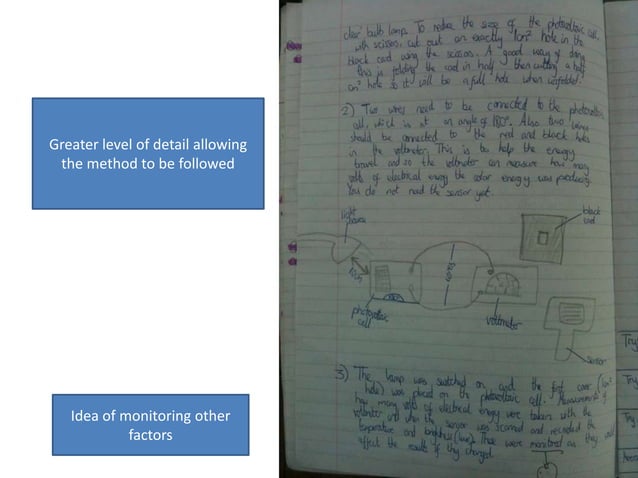 Greater level of detail allowing
the method to be followed
Idea of monitoring other
factors
clear bulb lamp. To reduce the size of the photovoltaic cell,
with scissors, cut out an exactly 1cm² hole in the
black card using the scissors. A good way of doing
this is folding the card in half, then cutting a half
cm² hole so it will be a full hole when unfolded.
2) Two wires need to be connected to the photovoltaic
cell, which is at an angle of 180°. Also two wires
should be connected to the red and black holes
in the voltmeter. This is to help the energy
travel and so the voltmeter can measure how many
volts of electrical energy the solar energy was producing.
You do not need the sensor yet.
light
source
black
card
wires
photovoltaic
cell
voltmeter
sensor
3) The lamp was switched on and the first cover (1cm²
hole) was placed on the photovoltaic cell. Measurements of
how many volts of electrical energy were taken with the
voltmeter and then the sensor was scanned and recorded the
temperature and brightness (lux). These were monitored as they could
affect the results if they changed.
Try
Try
Try